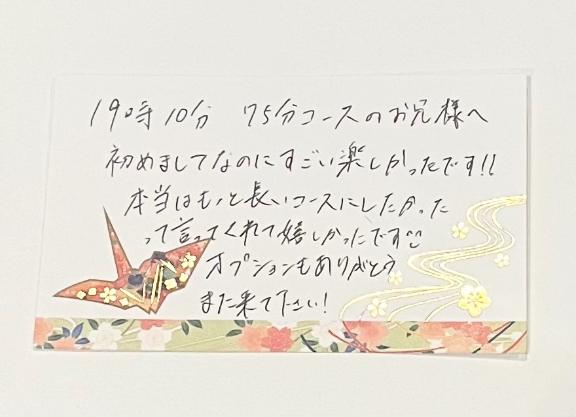 19時10分 75分コースのお兄様へ
初めましてなのにすごい楽しかったです!!
本当はもっと長いコースにしたかった
って言ってくれて嬉しかったです
オプションもありがとう
また来て下さい!